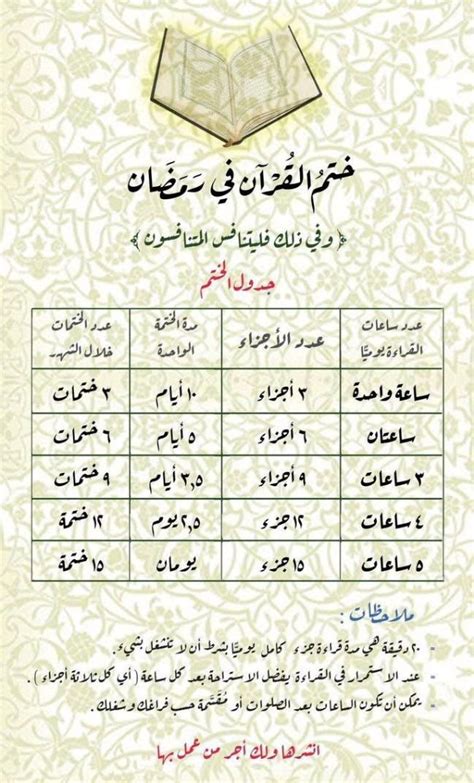 ختمُ القُرْآن في رَمَضَان
﴿ وفي ذلك فليتنافس المتنافسون ﴾
جدول الختم
عدد ساعات القراءة يوميًا | عدد الأجزاء | مدة الختمة الواحدة | عدد الختمات خلال الشهر
ساعة واحدة | ٣ أجزاء | ١٠ أيام | ٣ ختمات
ساعتان | ٦ أجزاء | ٥ أيام | ٦ ختمات
٣ ساعات | ٩ أجزاء | ٣,٥ أيام | ٩ ختمات
٤ ساعات | ١٢ جزء | ٢,٥ يوم | ١٢ ختمة
٥ ساعات | ١٥ جزء | يومان | ١٥ ختمة
ملاحظات :
- ٢٠ دقيقة هي مدة قراءة جزء كامل يوميًا بشرط أن لا تنشغل بشيء .
- عند الاستمرار في القراءة يفضل الاستراحة بعد كل ساعة ( أي كل ثلاثة أجزاء ) .
- يمكن أن تكون الساعات بعد الصلوات أو مُقَسَّمة حسب فراغك وشغلك .
انشرها ولك أجر من عمل بها